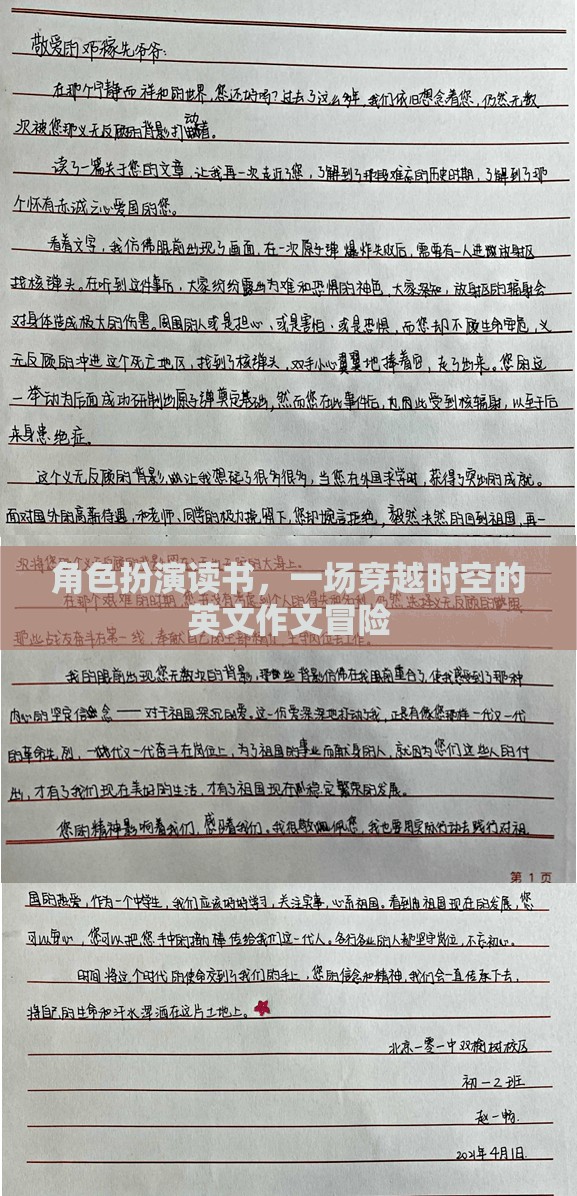 敬爱的邓稼先爷爷：
在那个宁静而祥和的世界，您还好吗？过去了这么多年，我们依旧想念着您，仍然无数
次被您那义无反顾的背影打动着。
读了一篇关于您的文章，让我再一次走近了您，了解到了那段难忘的历史时期，了解到了那
个怀有赤诚之心爱国的您。
看着文字，我仿佛眼前出现了画面，在一次原子弹爆炸失败后，需要有一人进放射区
找核弹头。在听到这件事后，大家纷纷露出为难和恐惧的神色，大家深知，放射区的辐射会
对身体造成极大的伤害。周围的人或是担心，或是害怕，或是恐惧，而您却不顾生命安危，义
无反顾的冲进这个死亡地区，找到了核弹头，双手小心翼翼地捧着它，走了出来。您的这
一举动为后面成功研制出原子弹奠定基础，然而您在此事件后，也因此受到核辐射，以至于后
来身患绝症。
这个义无反顾的背影，让我想起了很多很多，当您在外国求学时，获得了突出的成就。
面对国外的高薪待遇，和老师、同学的极力挽留下，您却婉言拒绝，毅然决然的回到祖国，再一
角色扮演读书，一场穿越时空的
英文作文冒险
我的眼前出现您无数次的背影，那些背影仿佛在我眼前重合了，使我感受到了那种
内心的坚定信念——对于祖国深沉的爱。这一份爱深深地打动了我，正是有像您那样一代又一代
的革命先烈，一代又一代奋斗在岗位上，为了祖国的事业而献身的人，就因为您们这些人的付
出，才有了我们现在美好的生活，才有了祖国现在稳定繁荣的发展。
您的精神影响着我们，感染着我们。我很敬佩您，我也要用实际行动去践行对祖
第 1 页
国的热爱，作为一个中学生，我们应该好好学习，关注实事，心系祖国。看到祖国现在的发展，您
可以安心，您可以把您手中的接力棒传给我们这一代人。各行各业的人都坚守岗位，不忘初心。
时间将这个时代的使命交到了我们的手上，您的信念和精神，我们会一直传承下去，
将自己的生命和汗水挥洒在这片土地上。
北京一零一中双榆树校区
初一2班
赵一畅
2021年4月1日